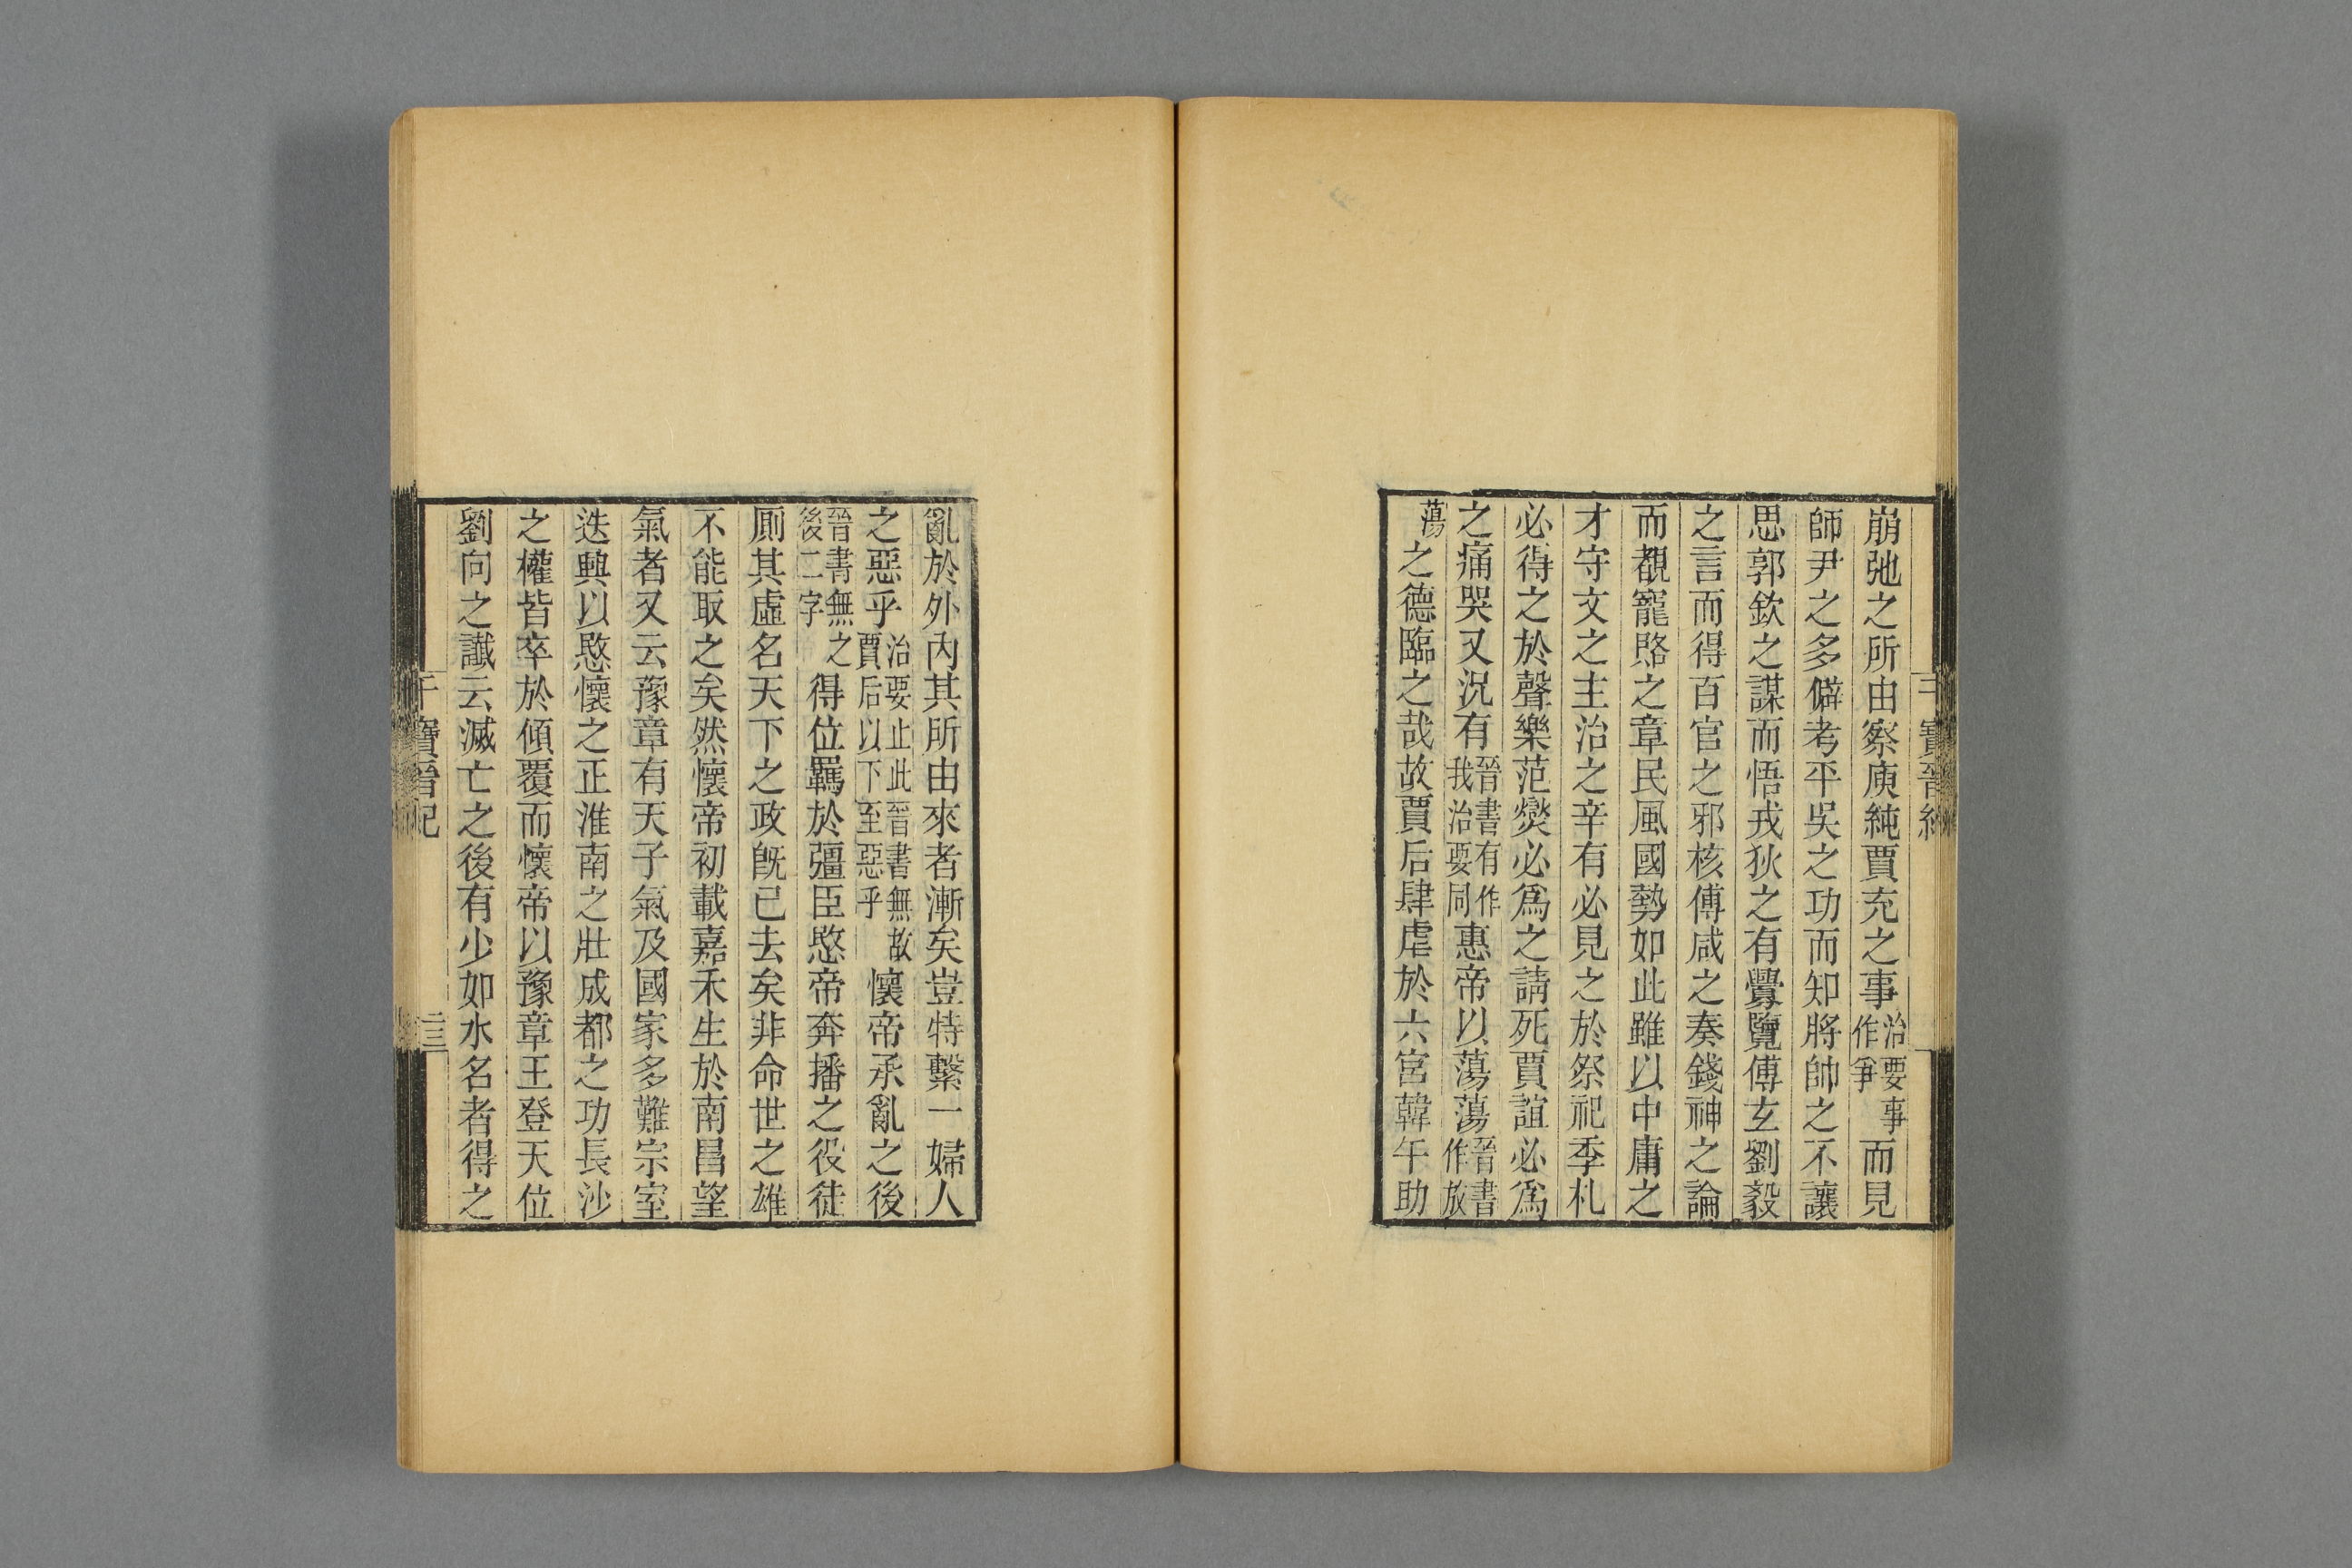 崩弛之所由察庾純賈充之事治要事作爭而見
師尹之多僻考平吳之功而知將帥之不讓
思郭欽之謀而悟戎狄之有釁覽傅玄劉毅
之言而得百官之邪核傅咸之奏錢神之論
而覩寵賂之章民風國勢如此雖以中庸之
才守文之主治之辛有必見之於祭祀季札
必得之於聲樂范爕必爲之請死賈誼必爲
之痛哭又況有晉書有作我治要同惠帝以蕩蕩晉書作放
蕩之德臨之哉故賈后肆虐於六宮韓午助
亂於外內其所由來者漸矣豈特繫一婦人
之惡乎治要止此晉書無故賈后以下至惡乎懷帝承亂之後
晉書無之後二字得位羈於彊臣愍帝奔播之役徒
厠其虛名天下之政旣已去矣非命世之雄
不能取之矣然懷帝初載嘉禾生於南昌望
氣者又云豫章有天子氣及國家多難宗室
迭興以愍懷之正淮南之壯成都之功長沙
之權皆卒於傾覆而懷帝以豫章王登天位
劉向之讖云滅亡之後有少如水名者得之
干寶晉紀
三